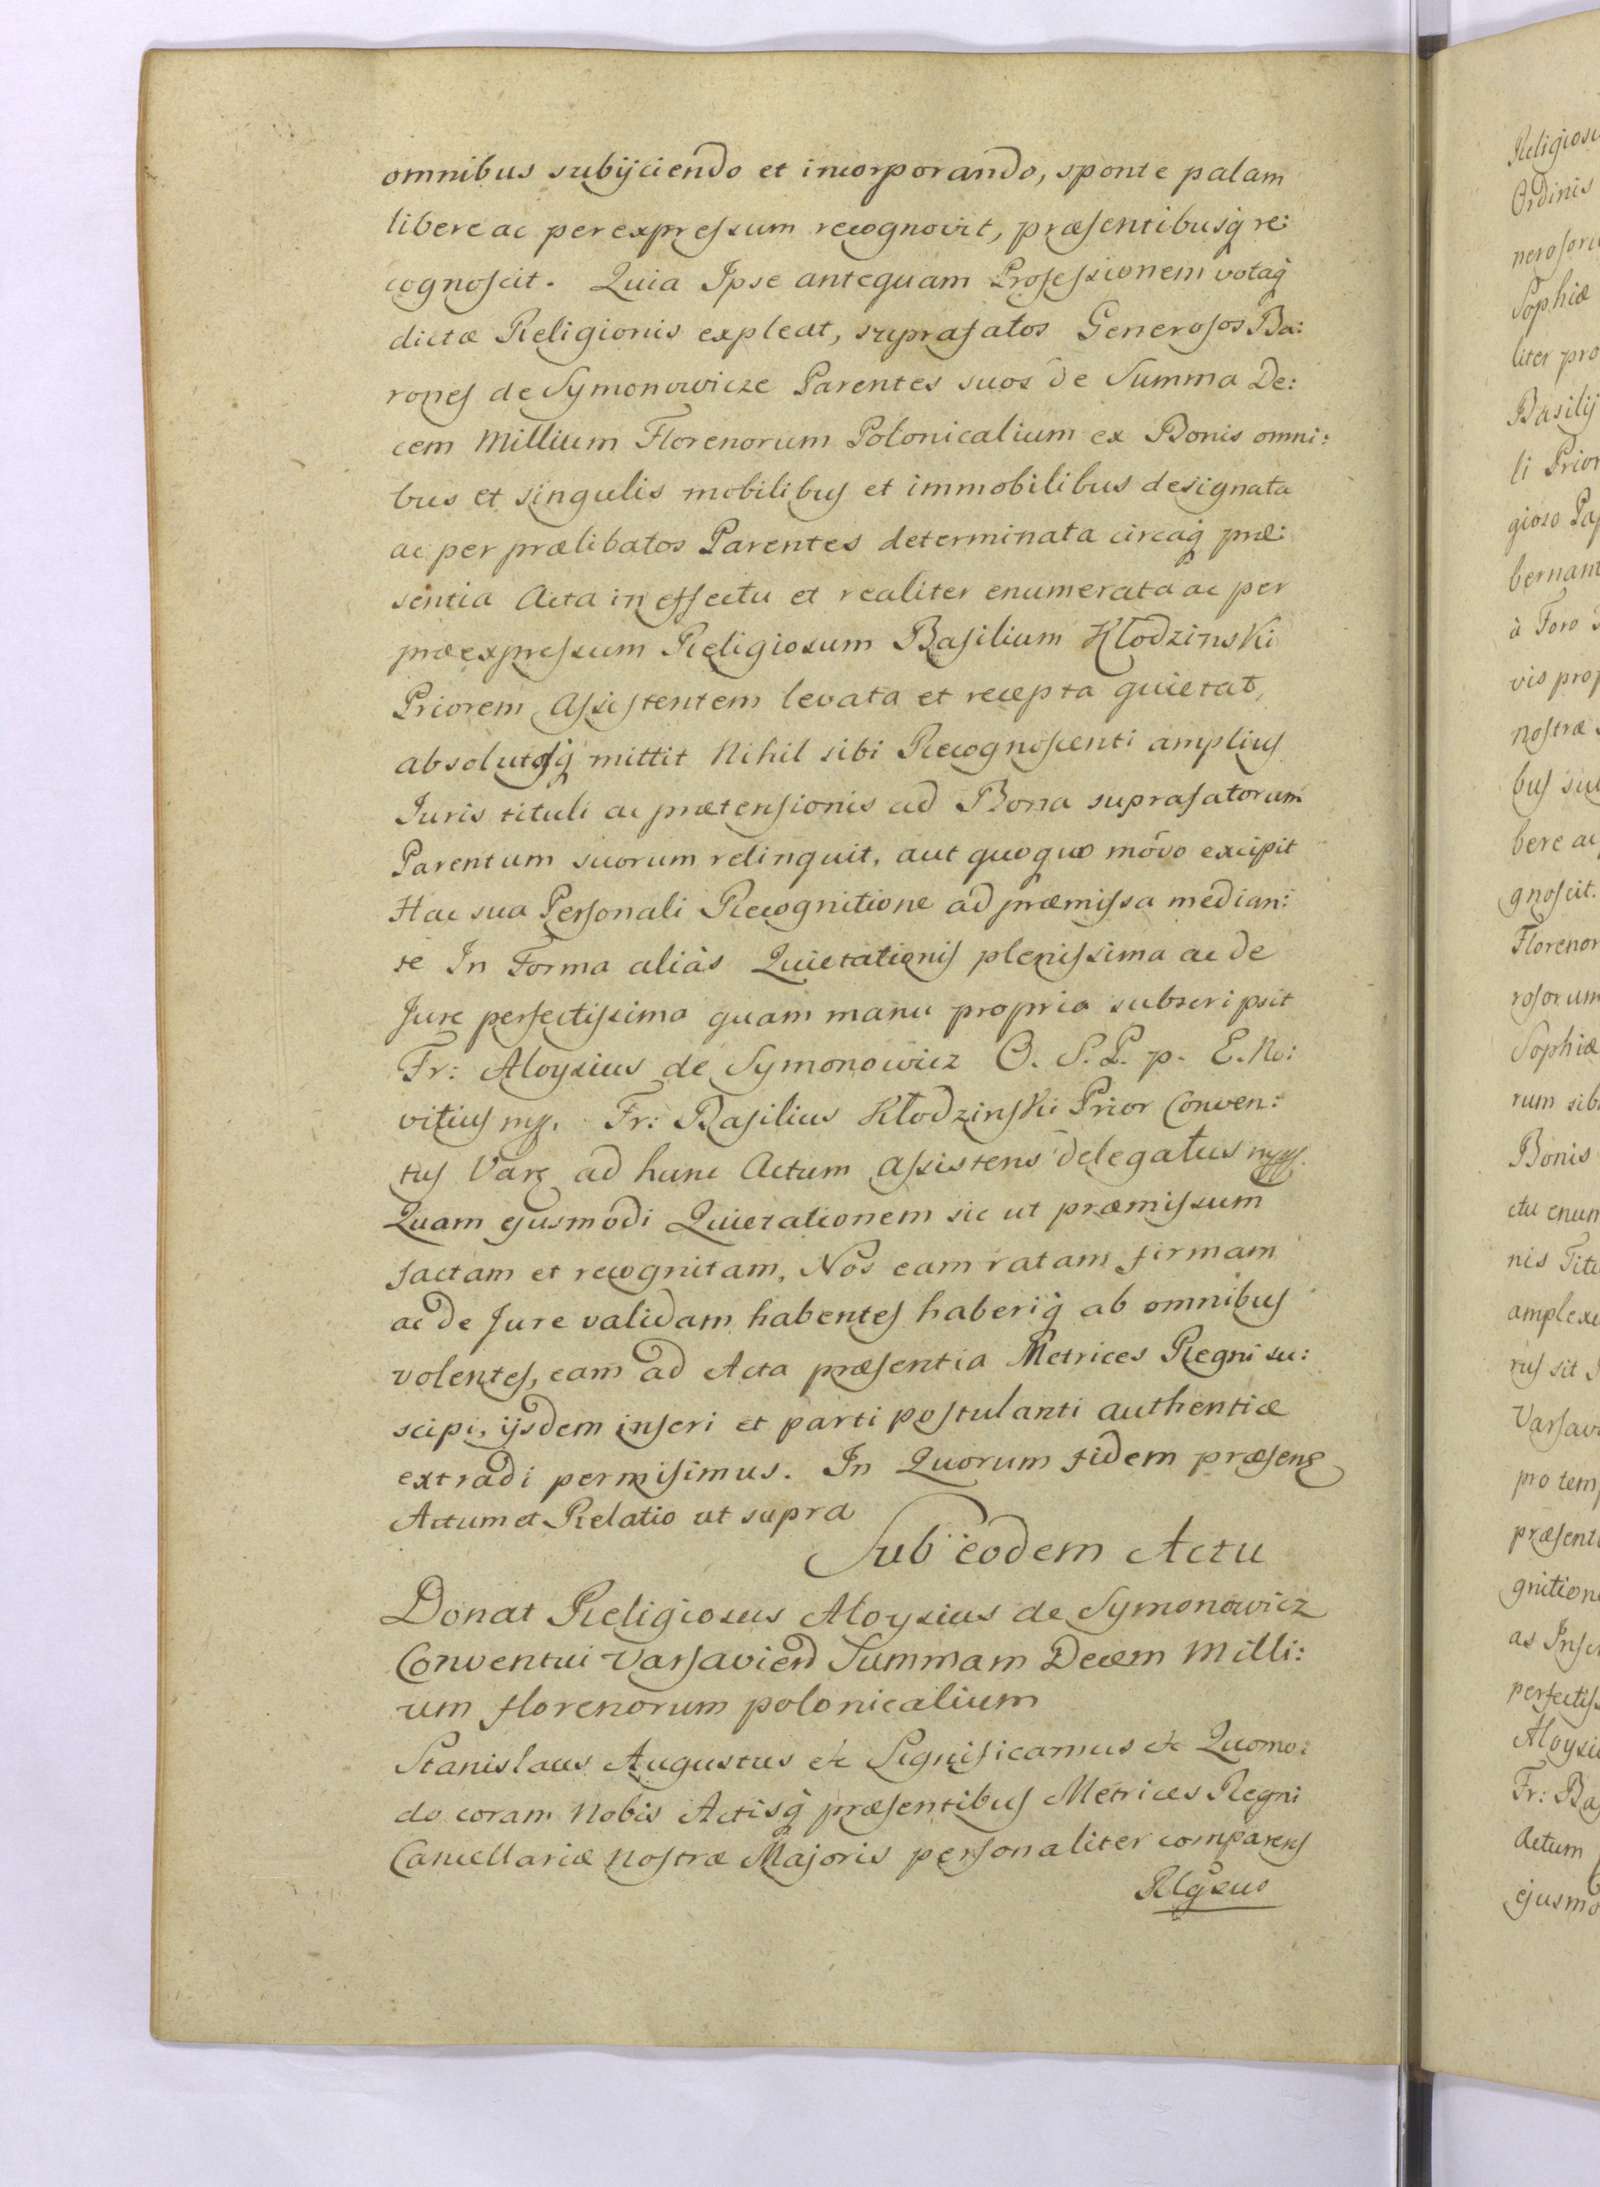 omnibus subijciendo et incorporando, sponte palam
libere ac per expressum recognovit, præsentibusq́ re:
cognoscit. Quia Ipse antequam Professionem votaq́
dictæ Religionis expleat, suprafatos Generosos Ba:
rones de Symonowicze Parentes suos de Summa De:
cem Millium Florenorum Polonicalium ex Bonis omni:
bus et singulis mobilibus et immobilibus designata
ac per prælibatos Parentes determinata circaq́ præ:
sentia Acta in effectu et realiter enumerata ac per
præexpressum Religiosum Basilium Kłodzinski
Priorem Assistentem levata et recepta quietat,
absolutosq́ mittit Nihil sibi Recognoscenti amplius
Juris tituli ac prætensionis ad Bona suprafatorum
Parentum suorum relinquit, aut quoquo mõdo excipit
Hac sua Personali Recognitione ad præmissa median:
te In Forma aliàs Quietationis plenissima ac de
Jure perfectissima quam manu propria subscripsit
Fr: Aloysius de Symonowicz O. S. P. p. E. No:
vitius mp. Fr: Basilius Kłodzinski Prior Conven:
tus Varę ad hunc Actum Assistens delegatus mpp.
Quam ejusmodi Quietationem sic ut præmissum
factam et recognitam, Nos eam ratam firmam
ac de Jure validam habentes haberiq́ ab omnibus
volentes, eam ad Acta præsentia Metrices Regni su:
scipi, ijsdem inseri et parti postulanti authenticæ
extradi permisimus. In Quorum fidem præsenς
Actum et Relatio ut supra
Sub eodem Actu
Donat Religiosus Aloysius de Symonowicz
Conventui Varsavien Summam Decem Milli:
um florenorum polonicalium
Stanislaus Augustus &c Significamus &c Quomo:
do coram Nobis Actisq́ præsentibus Metrices Regni
Cancellariæ Nostræ Majoris personaliter comparens
Rlgsus
Ordinis
Sophiæ
liter pro
Basilij
li Prior
à Foro
nostræ
bere ac
gnoscit.
Sophiæ
Bonis
Actum